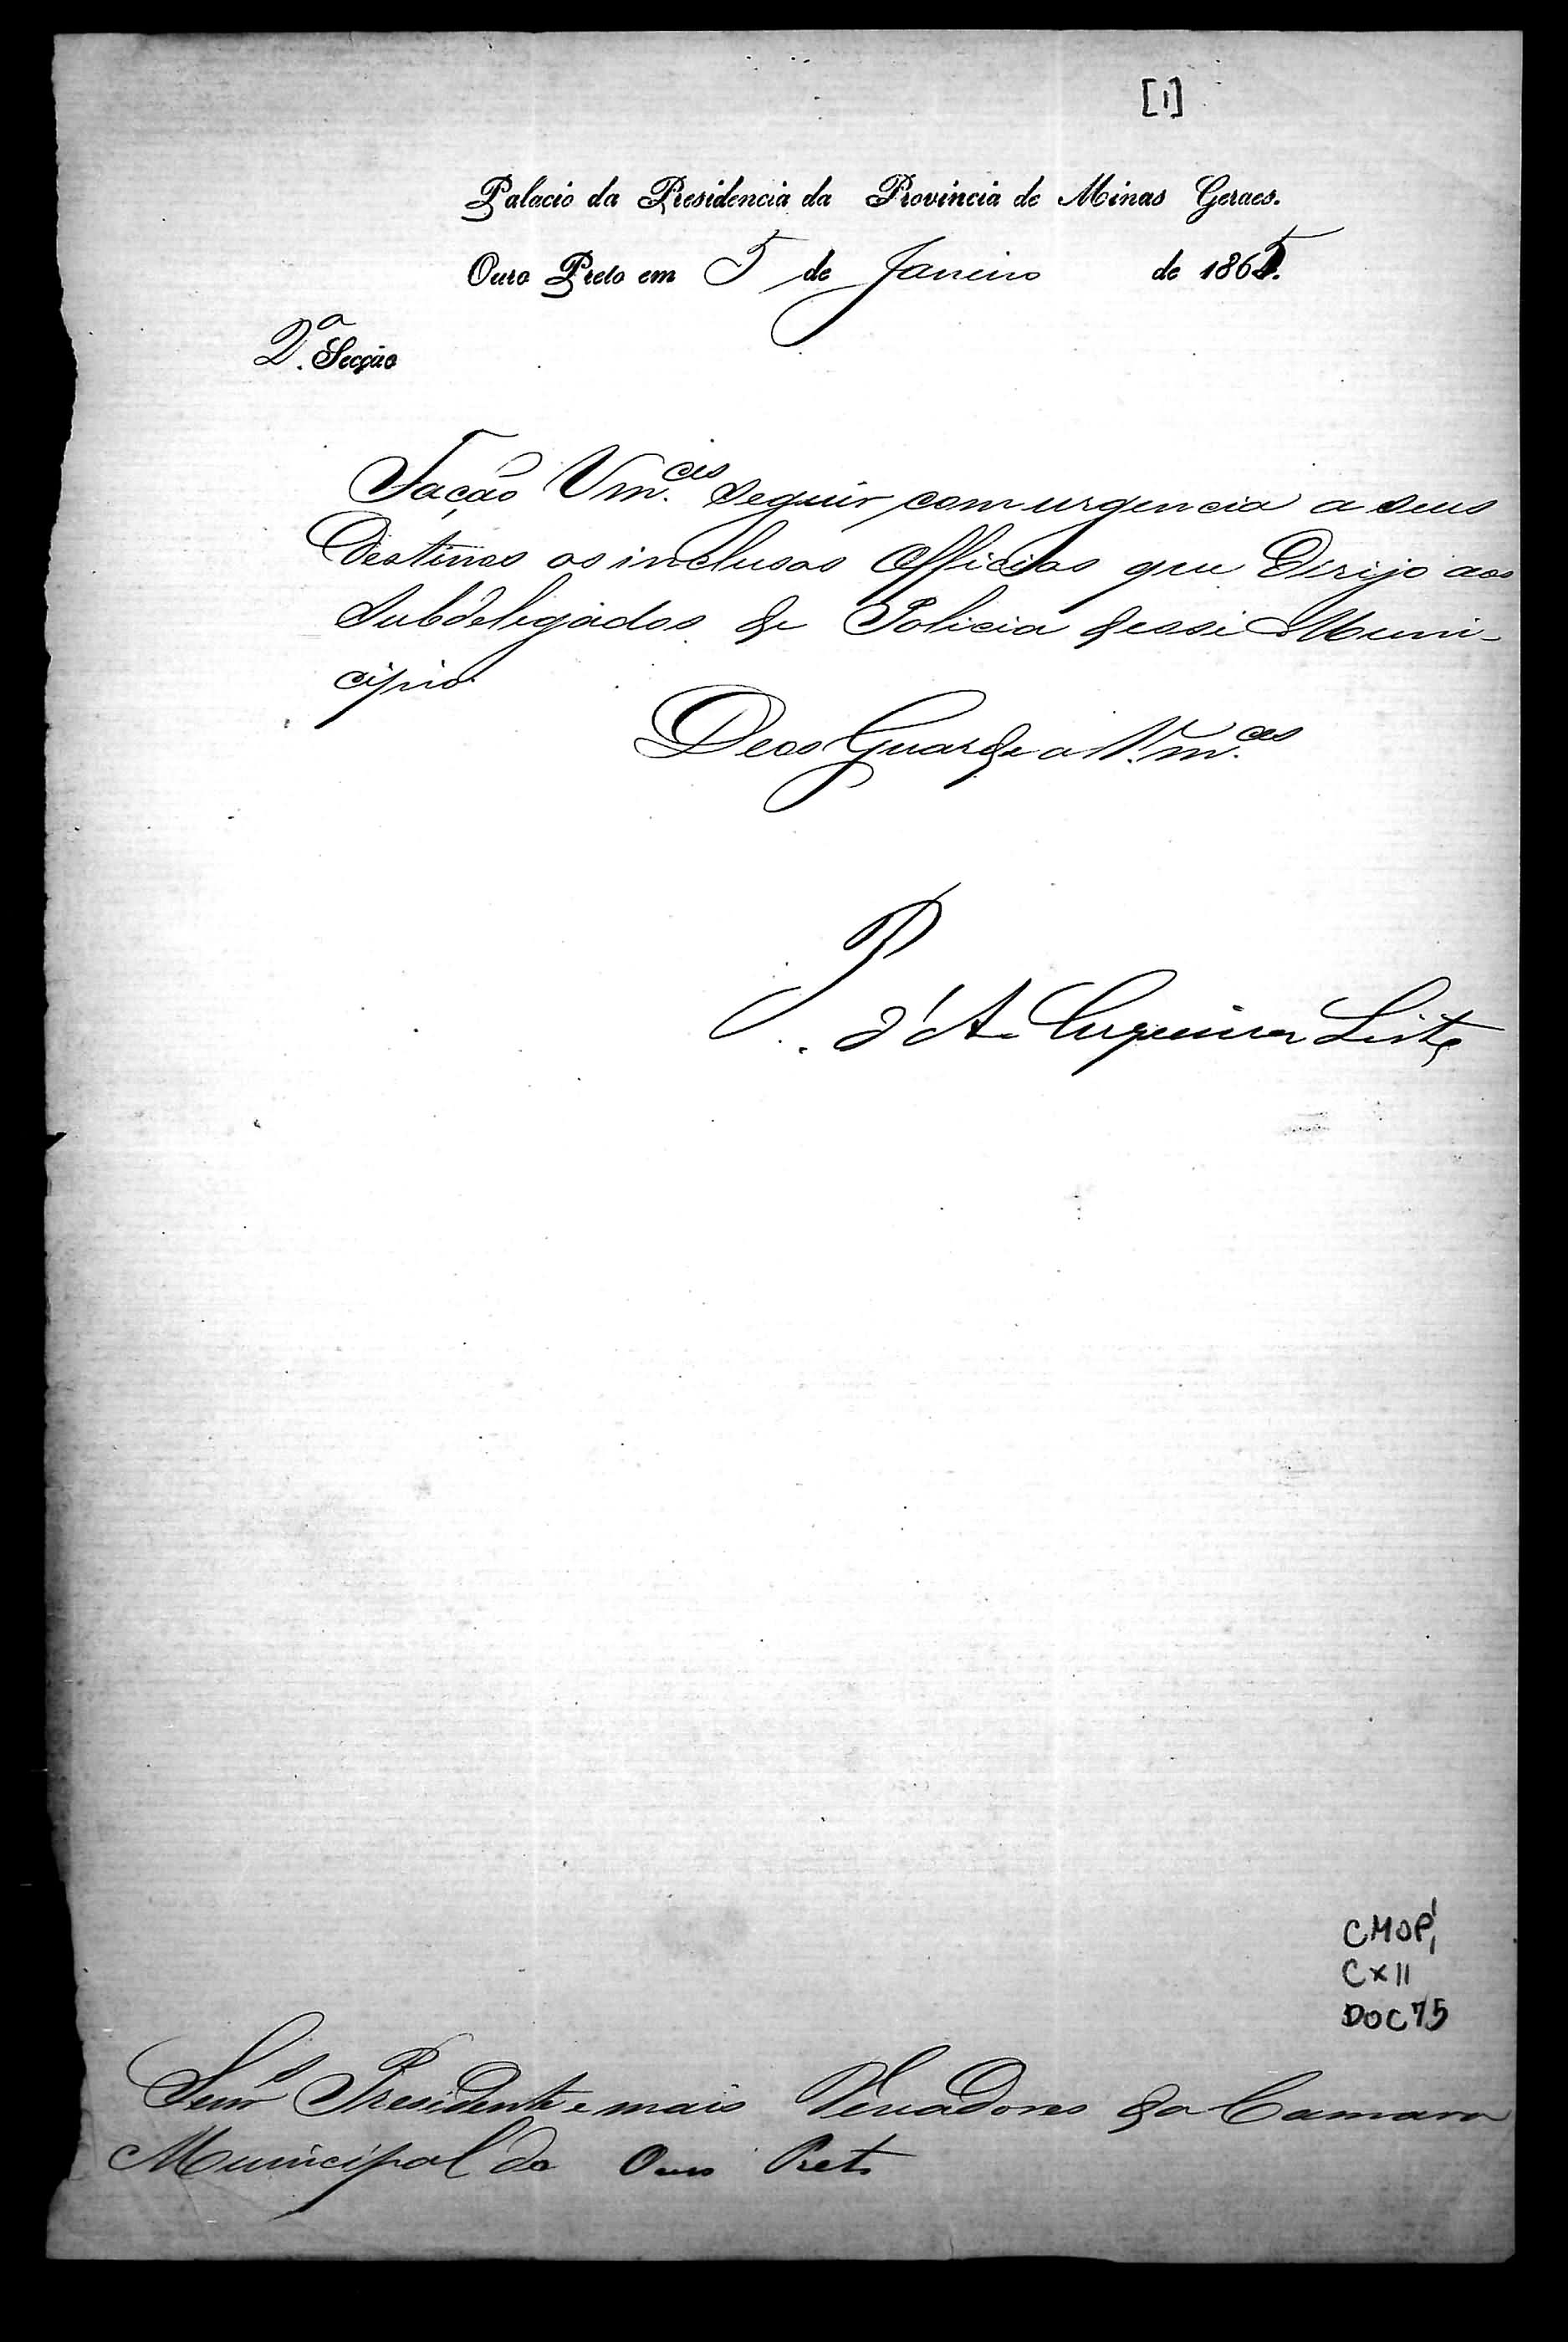 [1]
Palacio da Presidencia da Provincia de Minas Geraes.
Ouro Preto em 5 de Janeiro de 1865.
2ª. Secção
Fação Vm.ces seguir com urgencia a seus
Destinos os inclusos Officios que Dirijo aos
Subdelegados de Policia desse Muni-
cipio.
Deos Guarde a V.m.ces
P. d'A. Cerqueira Leite
CMOP
Cx 11
DOC 75
Senr Presidente e mais Vereadores da Camara
Municipal do Ouro Preto